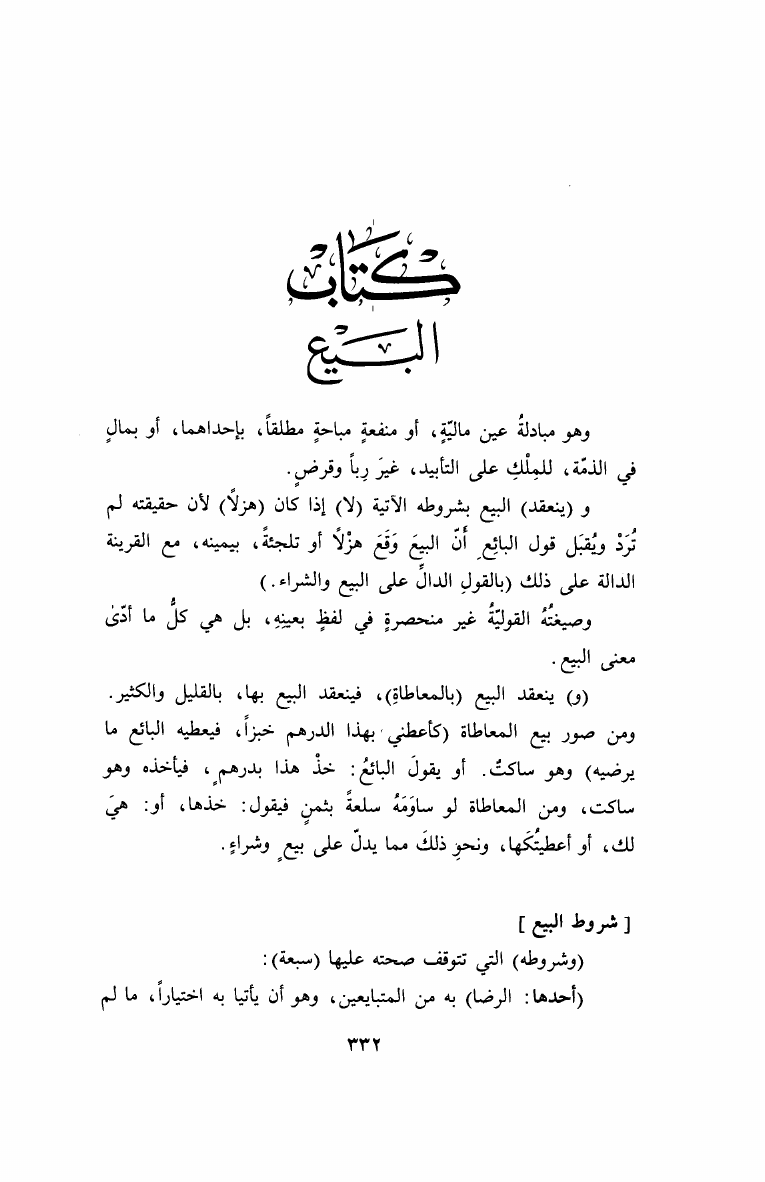 كتاب
البيع
وهو مبادلةُ عين ماليّةٍ، أو منفعةٍ مباحةٍ مطلقاً، بإحداهما، أو بمالٍ
في الذمّة، للمِلْكِ على التأبيد، غيرَ رِباً وقرضٍ.
و (ينعقد) البيع بشروطه الآتية (لا) إذا كان (هزلًا) لأن حقيقته لم
تُرَدْ ويُقبَل قول البائِعِ أَنّ البيعَ وَقَعَ هزْلًا أو تلجئةً، بيمينه، مع القرينة
الدالة على ذلك (بالقولِ الدالِّ على البيع والشراء.)
وصيغتُهُ القوليّةُ غير منحصرةٍ في لفظٍ بعينِهِ، بل هي كلُّ ما أدّىٰ
معنى البيع.
(و) ينعقد البيع (بالمعاطاةِ)، فينعقد البيع بها، بالقليل والكثير.
ومن صور بيع المعاطاة (كأعطني بهذا الدرهم خبزاً، فيعطيه البائع ما
يرضيه) وهو ساكتٌ. أو يقولَ البائعُ: خذْ هذا بدرهمٍ، فيأخذه وهو
ساكت، ومن المعاطاة لو ساوَمَهُ سلعةً بثمنٍ فيقول: خذها، أو: هيَ
لك، أو أعطيتُكَها، ونحوِ ذلكَ مما يدلّ على بيعٍ وشراءٍ.
[شروط البيع]
(وشروطه) التي تتوقف صحته عليها (سبعة):
(أحدها: الرضا) به من المتبايعين، وهو أن يأتيا به اختياراً، ما لم
٣٣٢